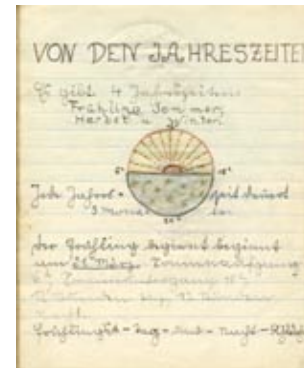 VON DEN JAHRESZEITE
Es gibt 4 Jahreszeiten
Frühling Sommer
Herbst u Winter
6ʰ 18ʰ
Jede Jahres- zeit dauert
3 Monate
Der Frühling beginnt beginnt
am 21. März. Sonnenaufgang
6ʰ, Sonnenuntergang
12 Stunden Tag, 12 Stunden